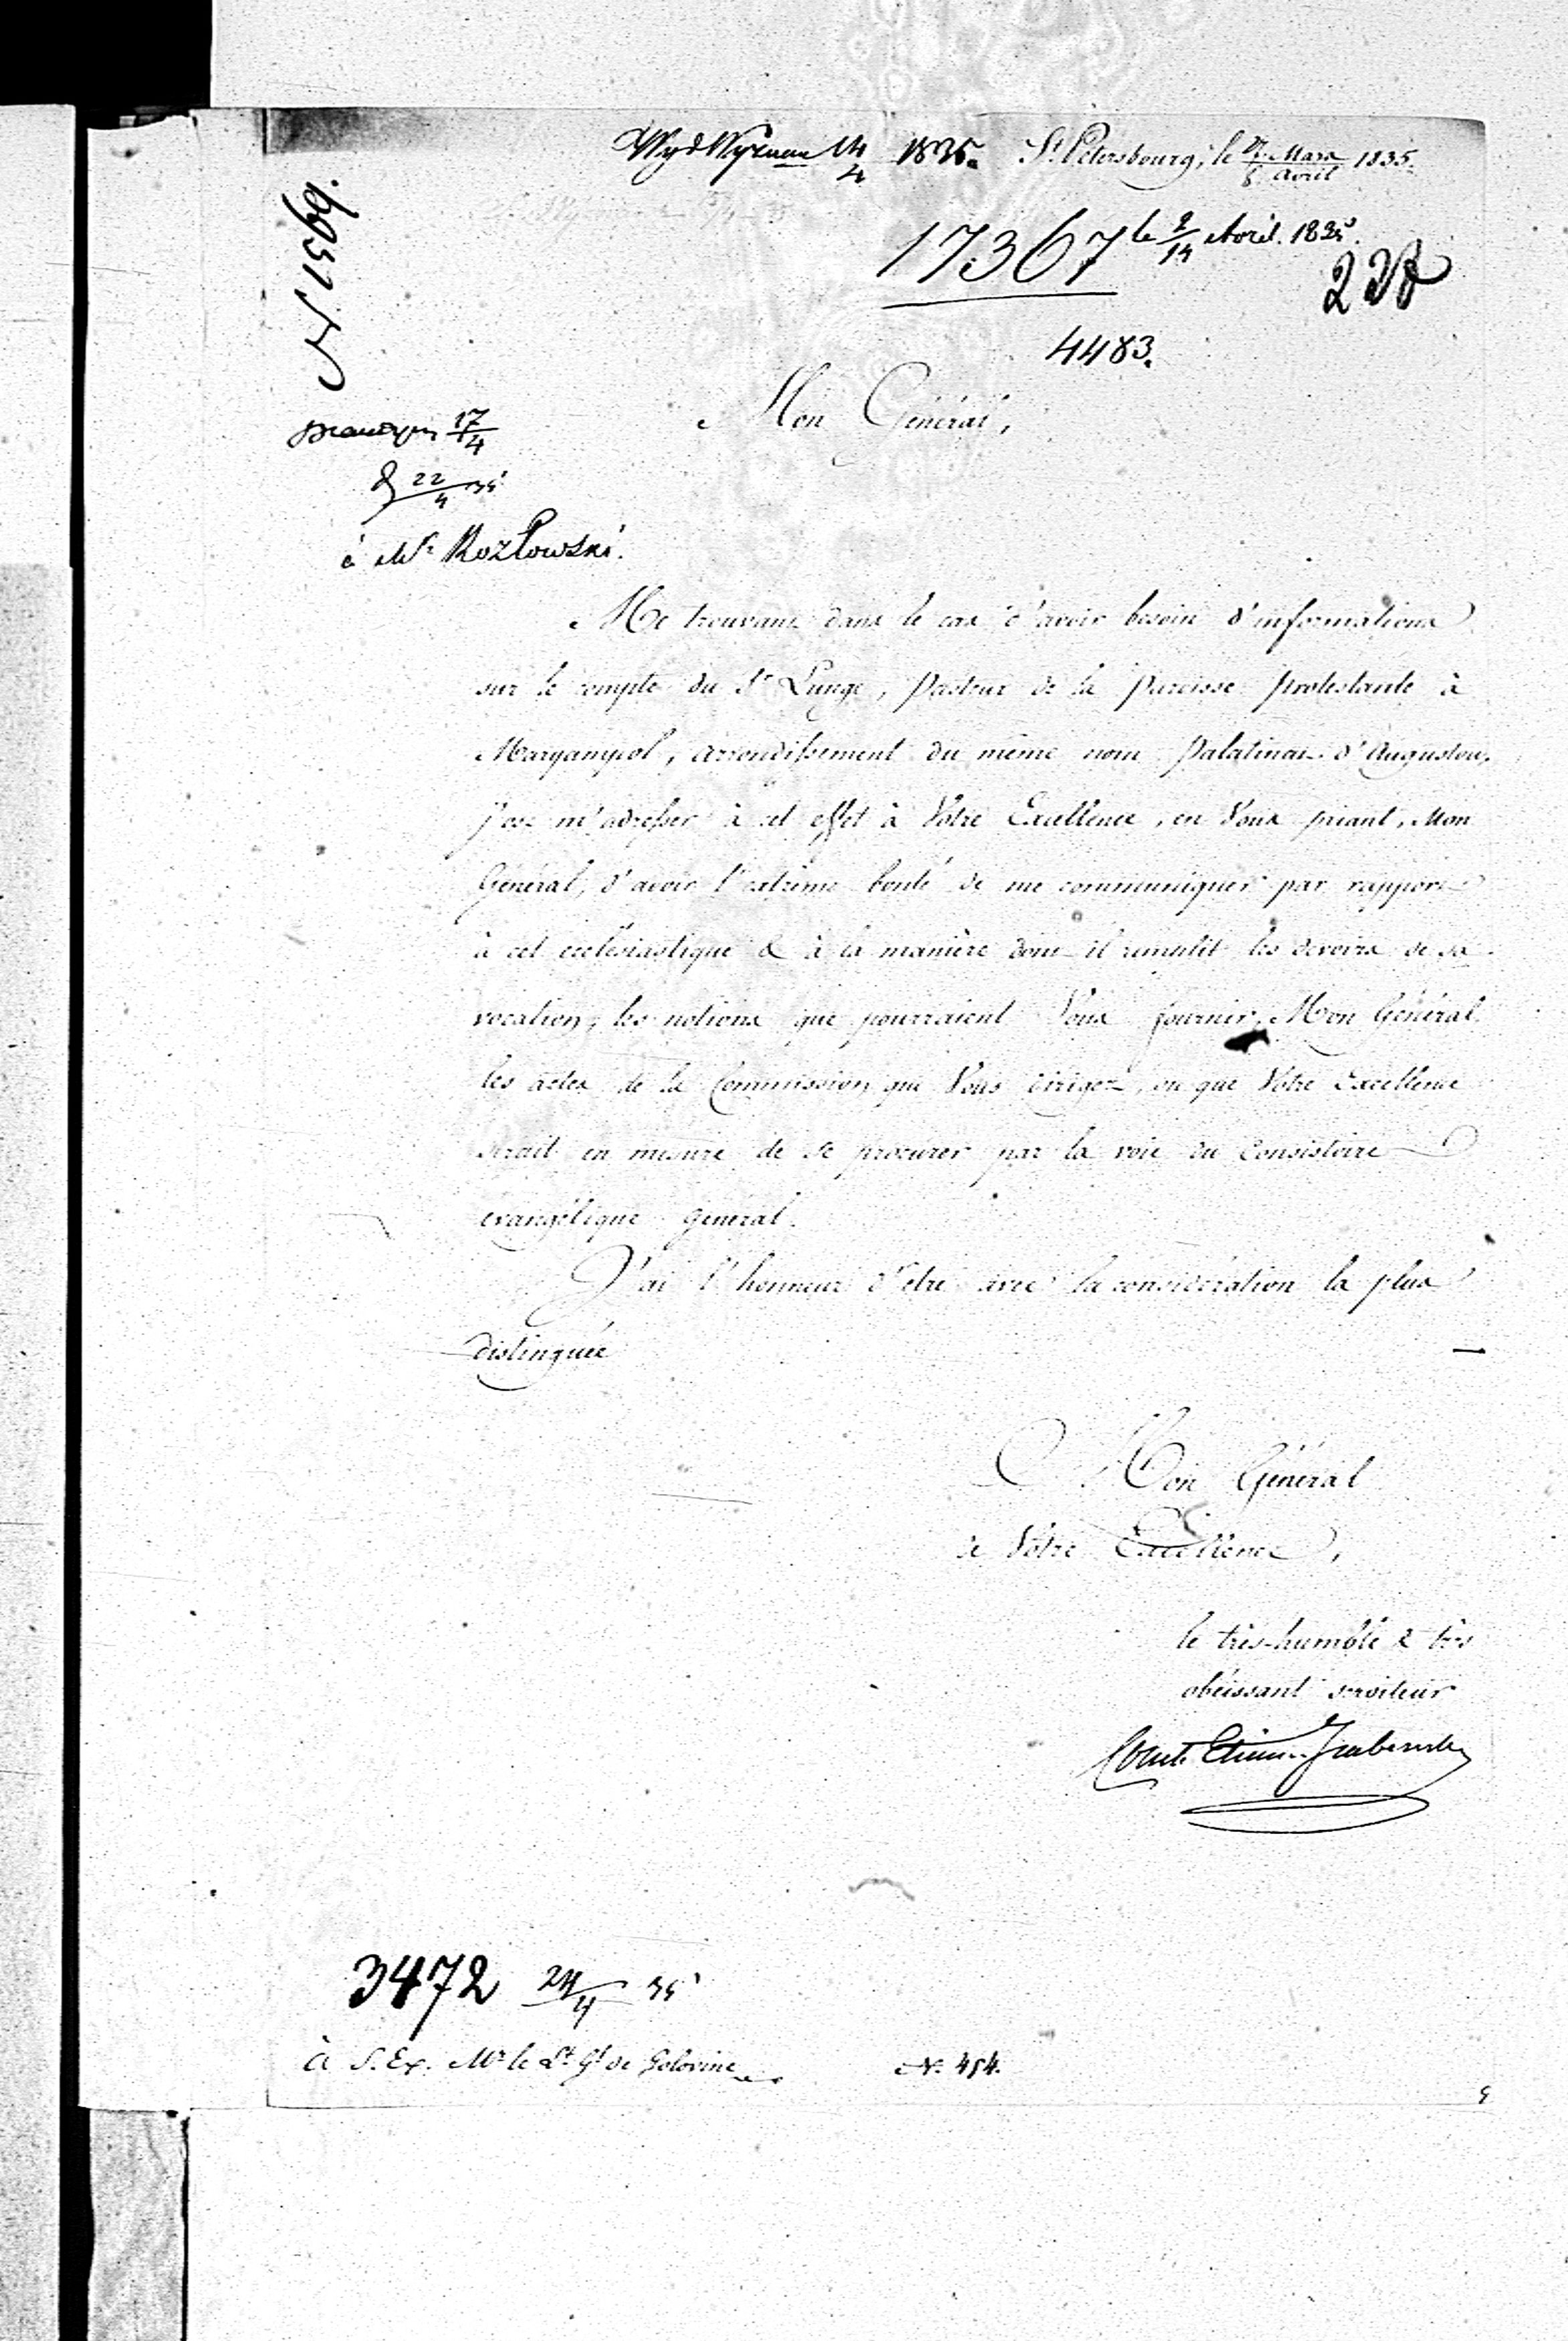 Wyd Wyznan 14/4 1835. St Pétersbourg, le 27 Mars / 8 Avril 1835.
N. 1569.
17367 le 2/14 Avril. 1835.
4483.
Mon Général,
17/4
22/4 35
à Mr Kozłowski.
Me trouvant dans le cas d'avoir besoin d'informations
sur le compte du Sr Lunge, Pasteur de la Paroisse protestante à
Maryampol, arrondissement du même nom Palatinat d'Augustow,
j'ose m'adresser à cet effet à Votre Excellence, en Vous priant, Mon
Général, d'avoir l'extrême bonté de me communiquer par rapport
à cet ecclésiastique & à la manière dont il remplit les devoirs de sa
vocation, les notions que pourraient Vous fournir, Mon Général
les actes de la Commission que Vous dirigez, ou que Votre Excellence
serait en mesure de se procurer par la voie du Consistoire
évangélique général.
J'ai l'honneur d'être avec la considération la plus
distinguée
Mon Général
de Votre Excellence,
le très-humble & très
obéissant serviteur
Comte Etienne Grabowski
3472 24/4 35
à S. Ex. Mr le Lt Gl de Golovine
N. 454.